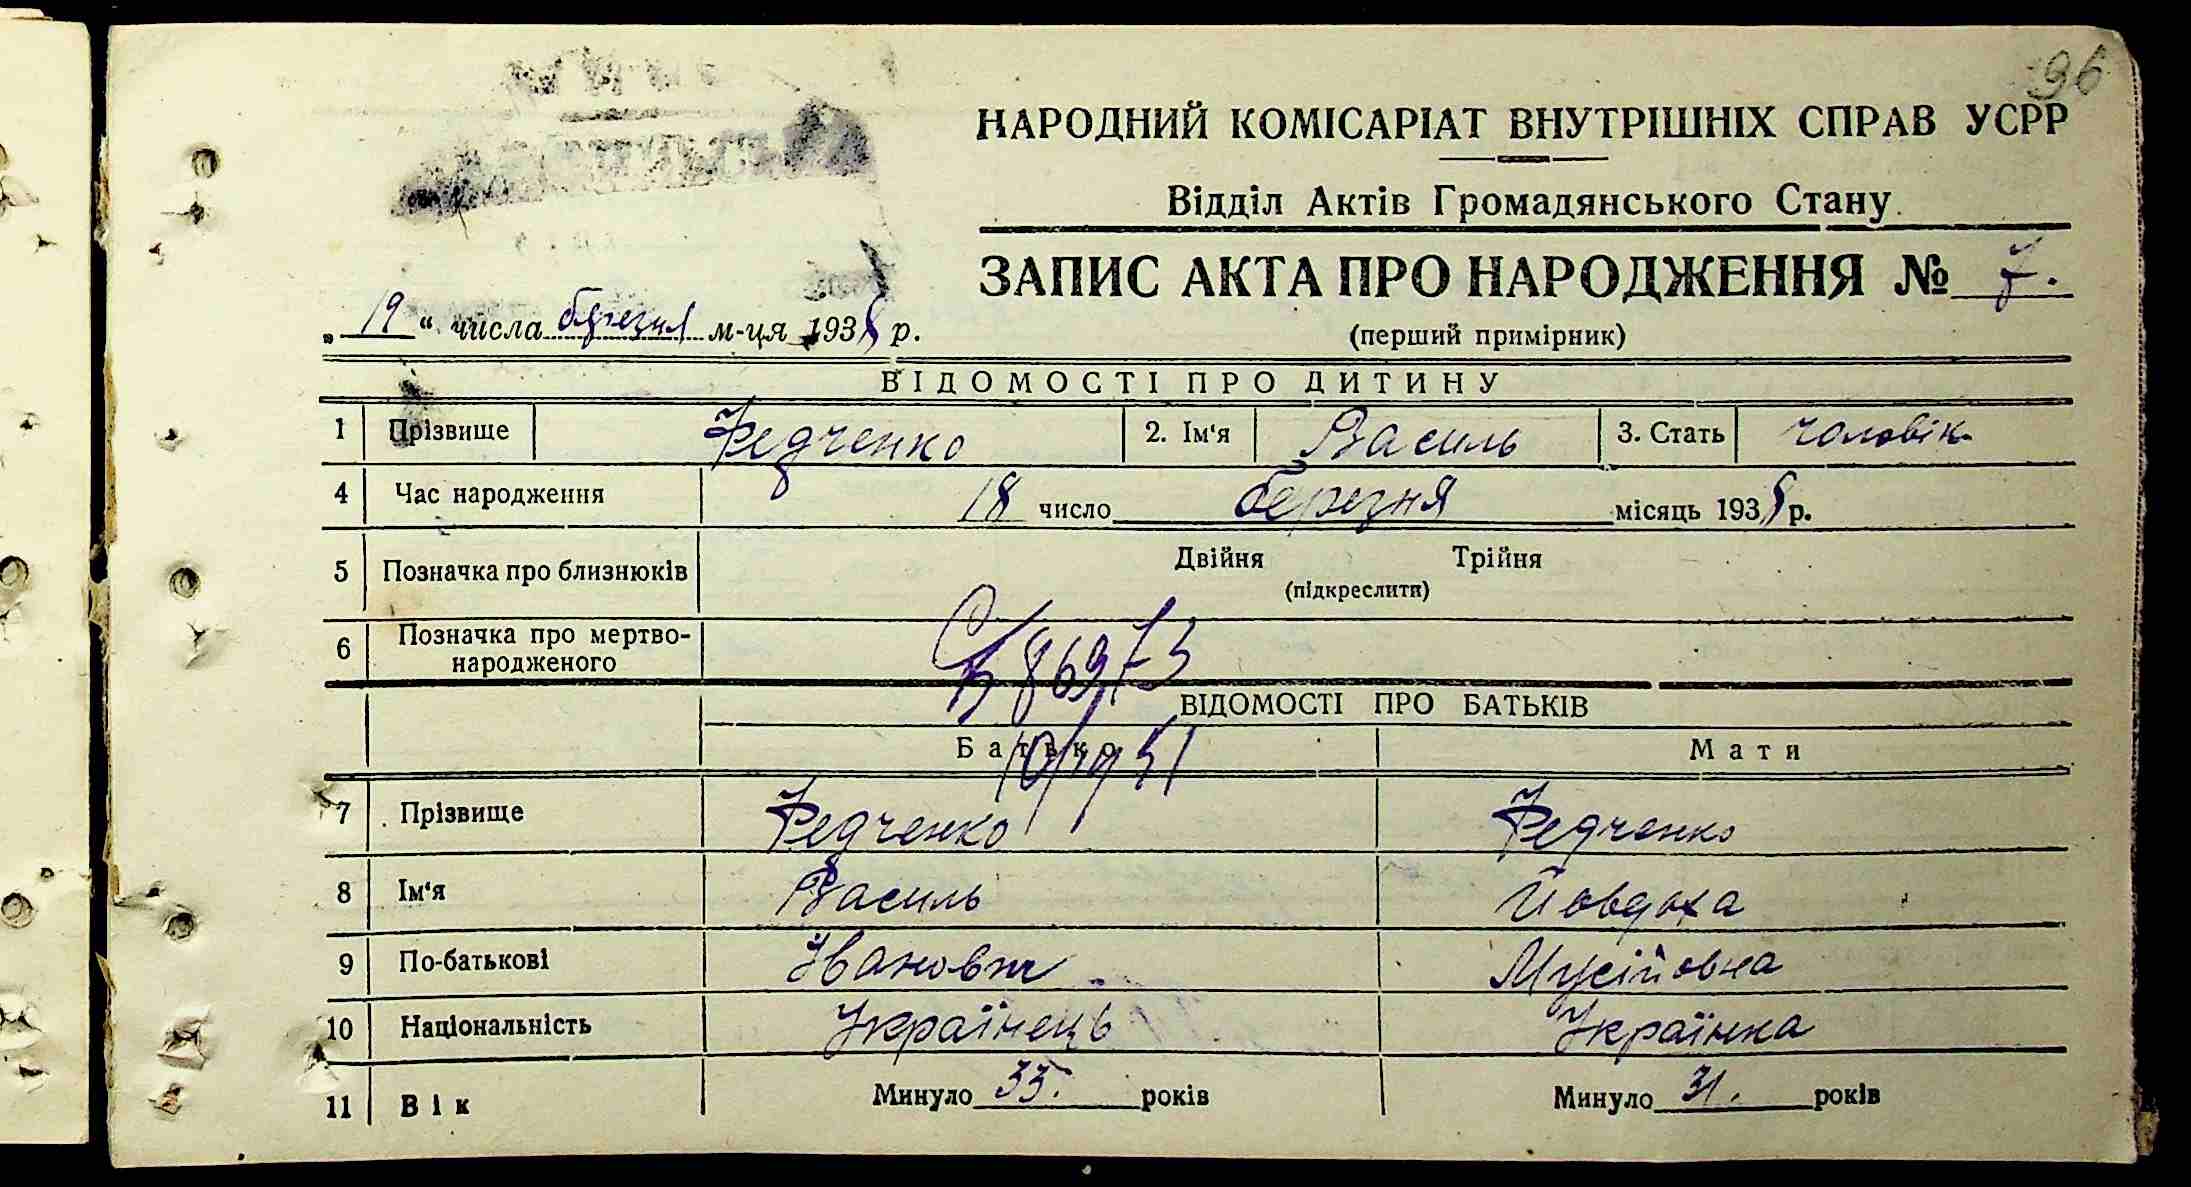 96
НАРОДНИЙ КОМІСАРІАТ ВНУТРІШНІХ СПРАВ УСРР
Відділ Актів Громадянського Стану
ЗАПИС АКТА ПРО НАРОДЖЕННЯ № 7.
„ 19 “ числа березня м-ця 1938 р.
(перший примірник)
ВІДОМОСТІ ПРО ДИТИНУ
1 Прізвище Федченко 2. Ім‘я Василь 3. Стать чоловік
4 Час народження 18 число березня місяць 1938 р.
5 Позначка про близнюків Двійня Трійня
(підкреслити)
6 Позначка про мертво-
народженого
86973
ВІДОМОСТІ ПРО БАТЬКІВ
Батько Мати
7 Прізвище Федченко Федченко
8 Ім‘я Василь Йовдоха
9 По-батькові Іванович Мусійовна
10 Національність Українець Українка
11 Вік Минуло 33. років Минуло 31. років